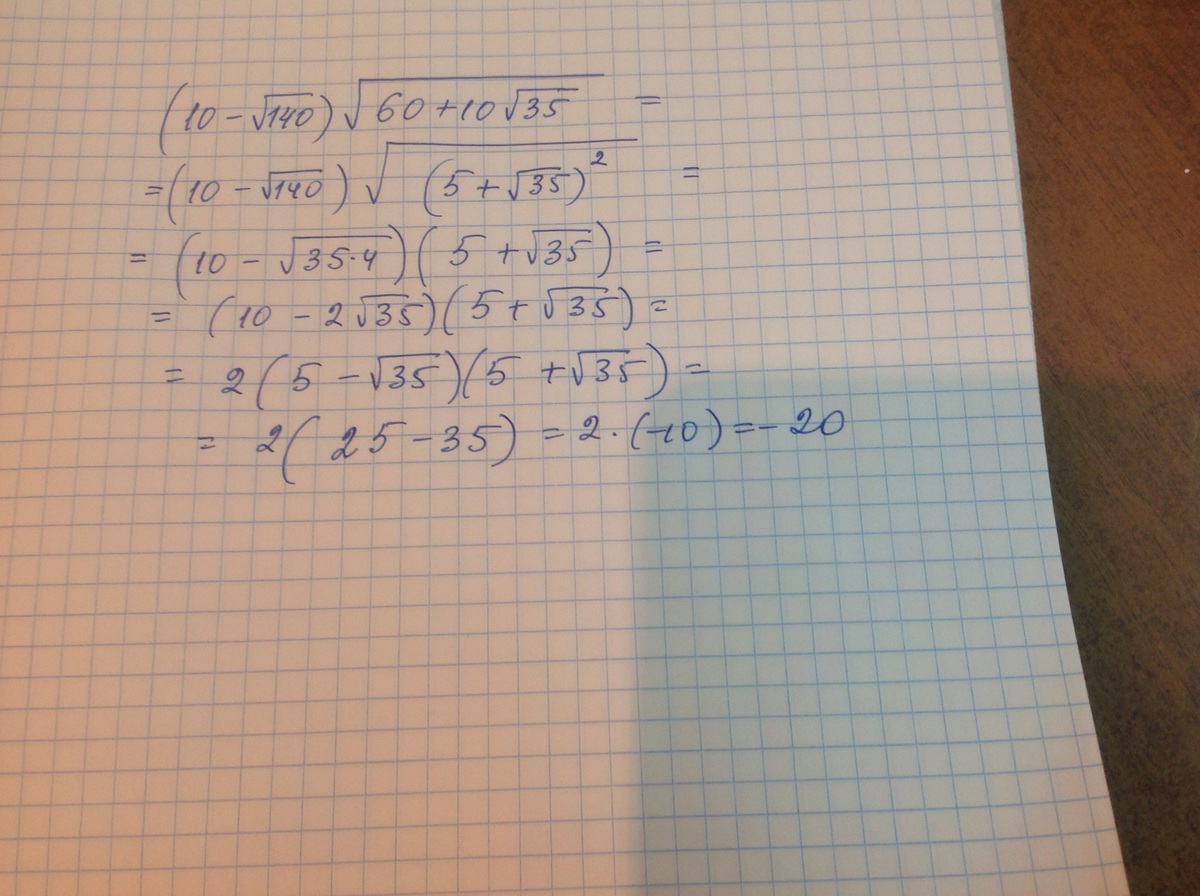 (10 - √140) √(60 + 10√35) =
= (10 - √140) √((5 + √35)²) =
= (10 - √(35·4))(5 + √35) =
= (10 - 2√35)(5 + √35) =
= 2(5 - √35)(5 + √35) =
= 2(25 - 35) = 2·(-10) = -20